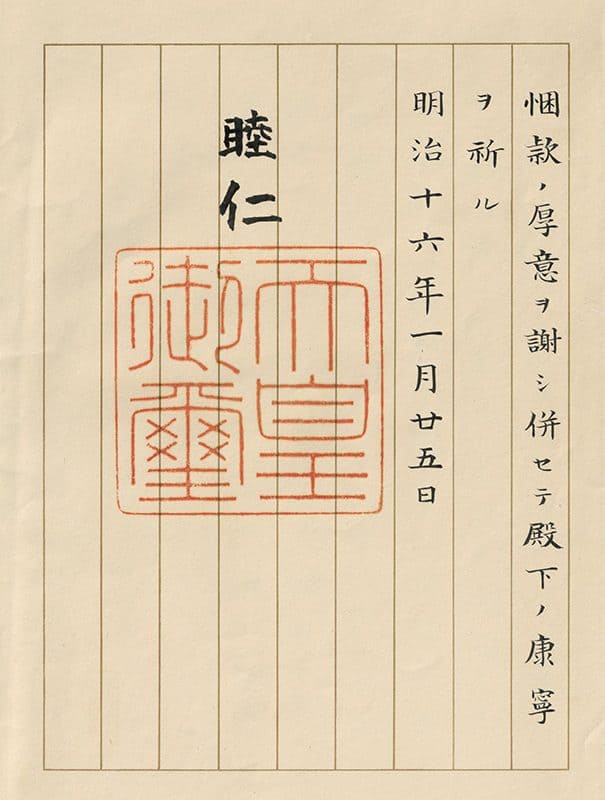 悃款ノ厚意ヲ謝シ併セテ殿下ノ康寧
ヲ祈ル
明治十六年一月廿五日
睦仁
天皇
御璽